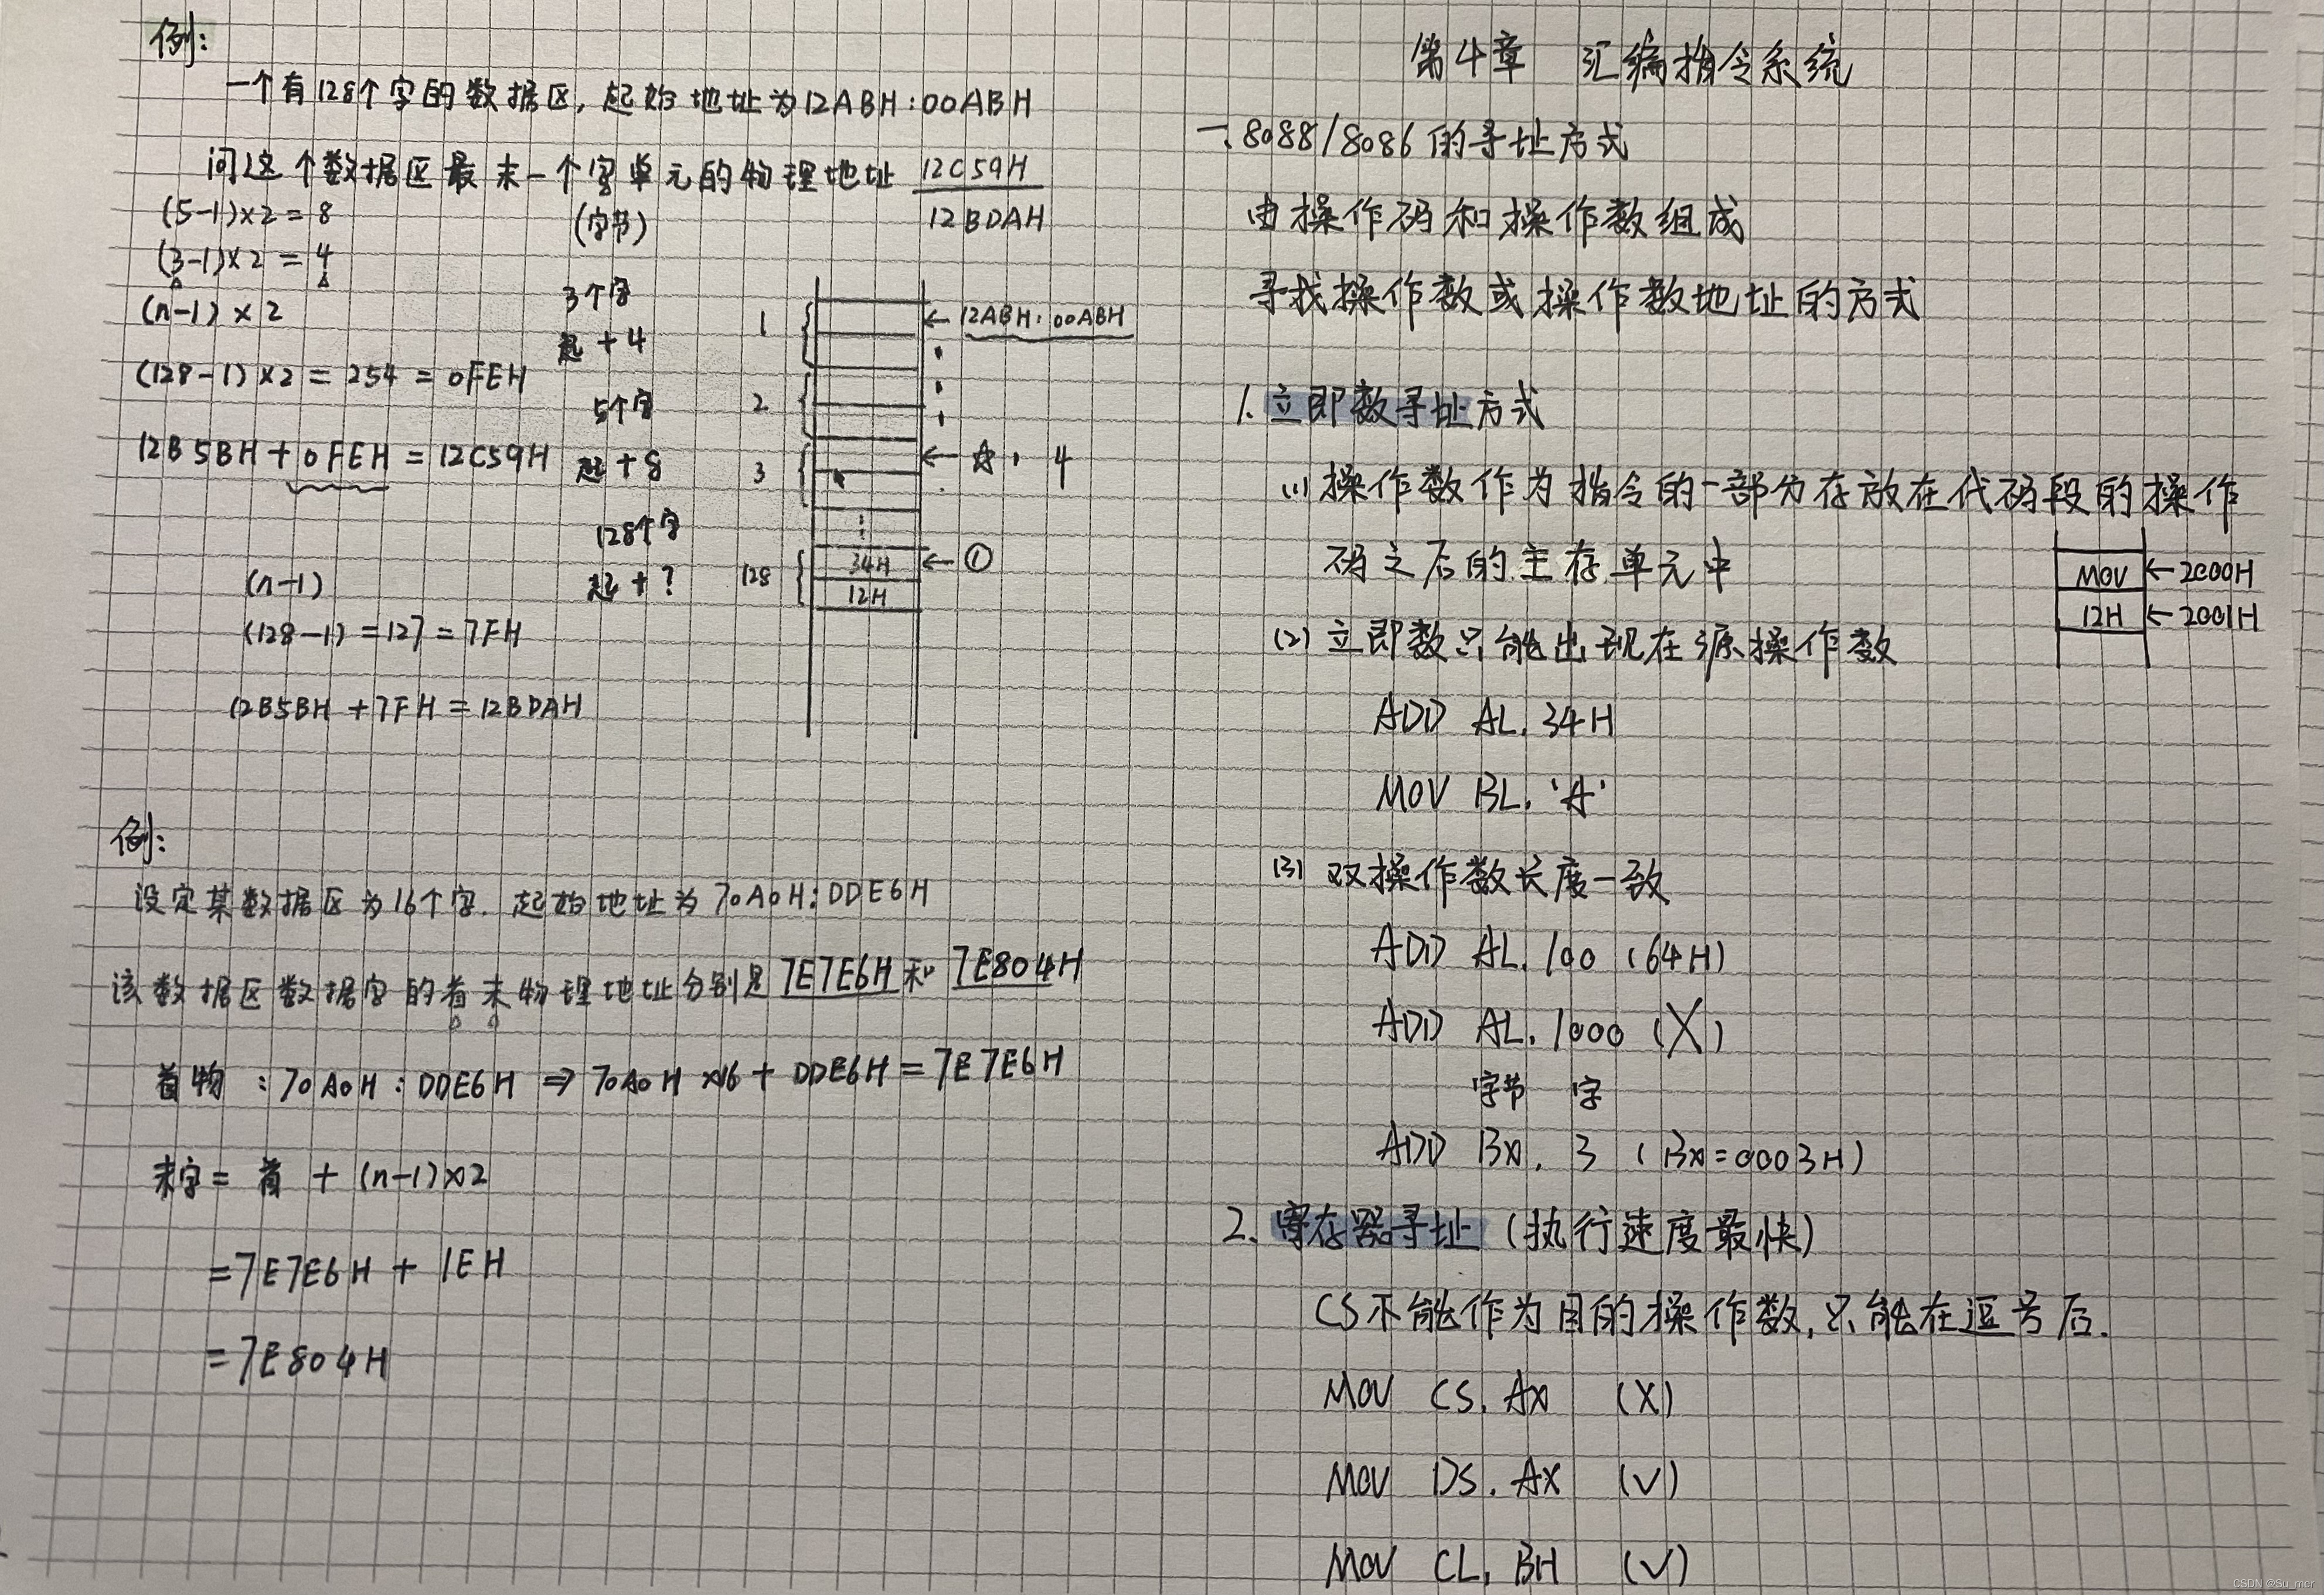 例:
一个有128个字的数据区, 起始地址为12ABH:00ABH
问这个数据区最末一个字单元的物理地址 12C59H
(字节) 12BDAH
(5-1)×2 = 8
(3-1)×2 = 4
(n-1)×2
(128-1)×2 = 254 = 0FEH
12B5BH + 0FEH = 12C59H
(n-1)
(128-1) = 127 = 7FH
12B5BH + 7FH = 12BDAH
3个字
起 + 4
5个字
起 + 8
128个字
起 + ?
1 ← 12ABH:00ABH
2
3 ← ☆ 4
⋮
128 34H ← ①
12H
例:
设定某数据区为16个字. 起始地址为70A0H:DDE6H
该数据区数据字的首末物理地址分别是 7E7E6H 和 7E804H
首物 : 70A0H : DDE6H ⇒ 70A0H ×16 + DDE6H = 7E7E6H
末字 = 首 + (n-1)×2
= 7E7E6H + 1EH
= 7E804H
第4章 汇编指令系统
一. 8088/8086 的寻址方式
由操作码和操作数组成
寻找操作数或操作数地址的方式
1. 立即数寻址方式
(1) 操作数作为指令的一部分存放在代码段的操作
码之后的主存单元中
MOV ← 2000H
12H ← 2001H
(2) 立即数只能出现在源操作数
ADD AL, 34H
MOV BL, 'A'
(3) 双操作数长度一致
ADD AL, 100 (64H)
ADD AL, 1000 (X)
字节 字
ADD BX, 3 (BX=0003H)
2. 寄存器寻址 (执行速度最快)
CS不能作为目的操作数, 只能在逗号后.
MOV CS, AX (X)
MOV DS, AX (√)
MOV CL, BH (√)
CSDN @Su_mer